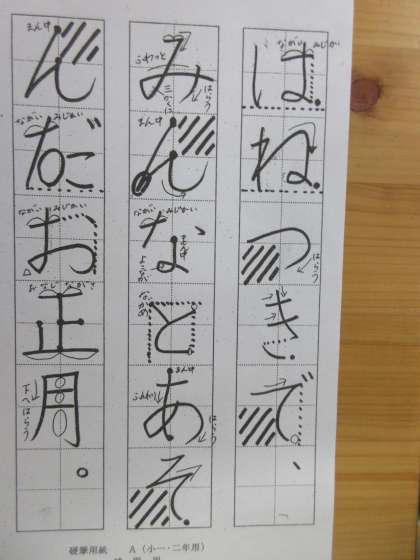 はねつきで、
みんなとあそ
んだお正月。
ながい みじかい
はらう
ふわっと
三かくに
はらう
まん中
ながい みじかい
まん中
よこなが
ななめ
まん中
はらう
まん中
ながい みじかい
ながい みじかい
おなじながさ
下へはらう
硬筆用紙 A（小一・二年用）